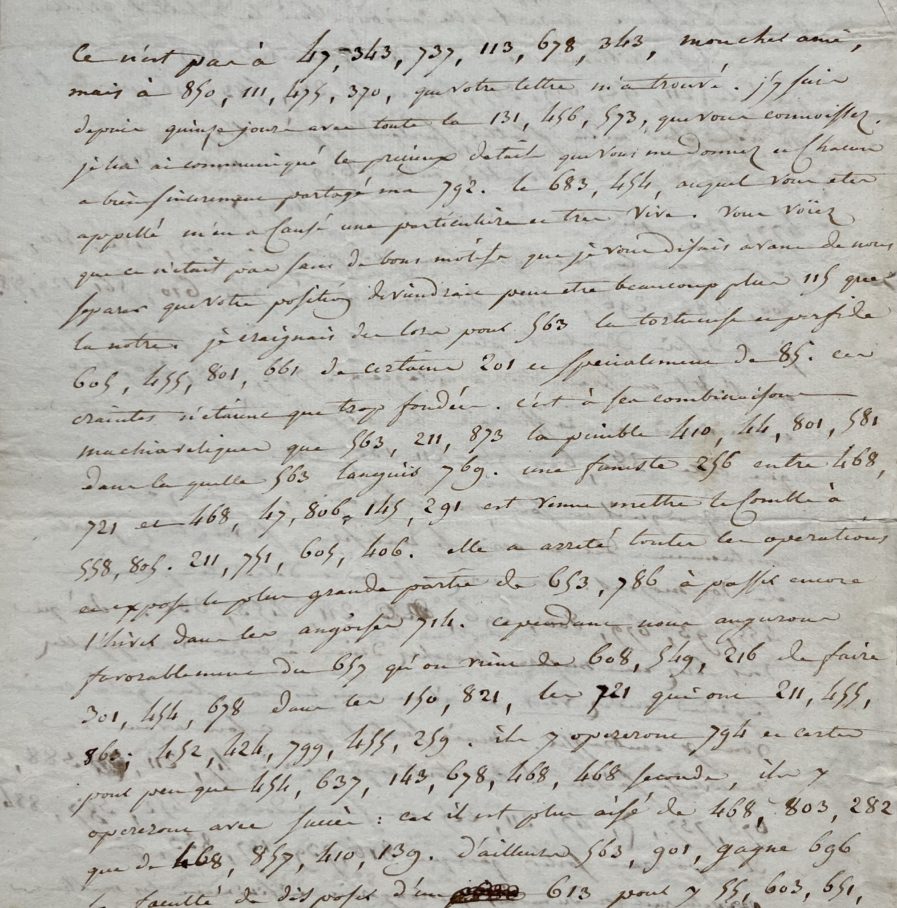 Ce n'est pas à 47, 343, 737, 113, 678, 343, mon cher ami,
mais à 850, 111, 475, 370, que votre lettre m'a trouvé. j'y suis
depuis quinze jours avec toute la 131, 456, 573, que vous connoissez.
je lui ai communiqué les précieux details que vous me donnez et Chacun
a bien sincerement partagé ma 792. le 683, 454, auquel vous etes
appellé m'en a Causé une particuliere et tres vive. Vous voiez
que ce n'etait pas sans de bons motifs que je vous disais avant de nous
separer que votre position deviendrait peut etre beaucoup plus 115 que
la notre. je craignais des lors pour 563 la tortueuse et perfide
605, 455, 801, 661 de certains 201 et specialement de 85. ces
craintes n'etaient que trop fondées. c'est à ses combinaisons
machiaveliques que 563, 211, 873 la penible 410, 44, 801, 581
dans laquelle 563 languis 769. une funeste 256 entre 468,
721 et 468, 47, 806, 145, 291 est venue mettre le Comble à
558, 805. 211, 751, 605, 406. elle a arreté toutes les operations
et expose la plus grande partie de 653, 786 à passer encore
l'hiver dans les angoises 714. cependant nous augurons
favorablement du 657 qu'on vient de 608, 549, 216 de faire
301, 454, 678 dans les 150, 821, les 721 qui ont 211, 455,
860; 452, 424, 799, 455, 259. ils y opereront 794 et certes
pour peu que 454, 637, 143, 678, 468, 468 seconde, ils y
opereront avec succès: car il est plus aisé de 468, 803, 282
que de 468, 857, 410, 139. d'ailleurs 563, 901, gagne 696
la faculté de disposer d'un 613 pour y 55, 603, 651,